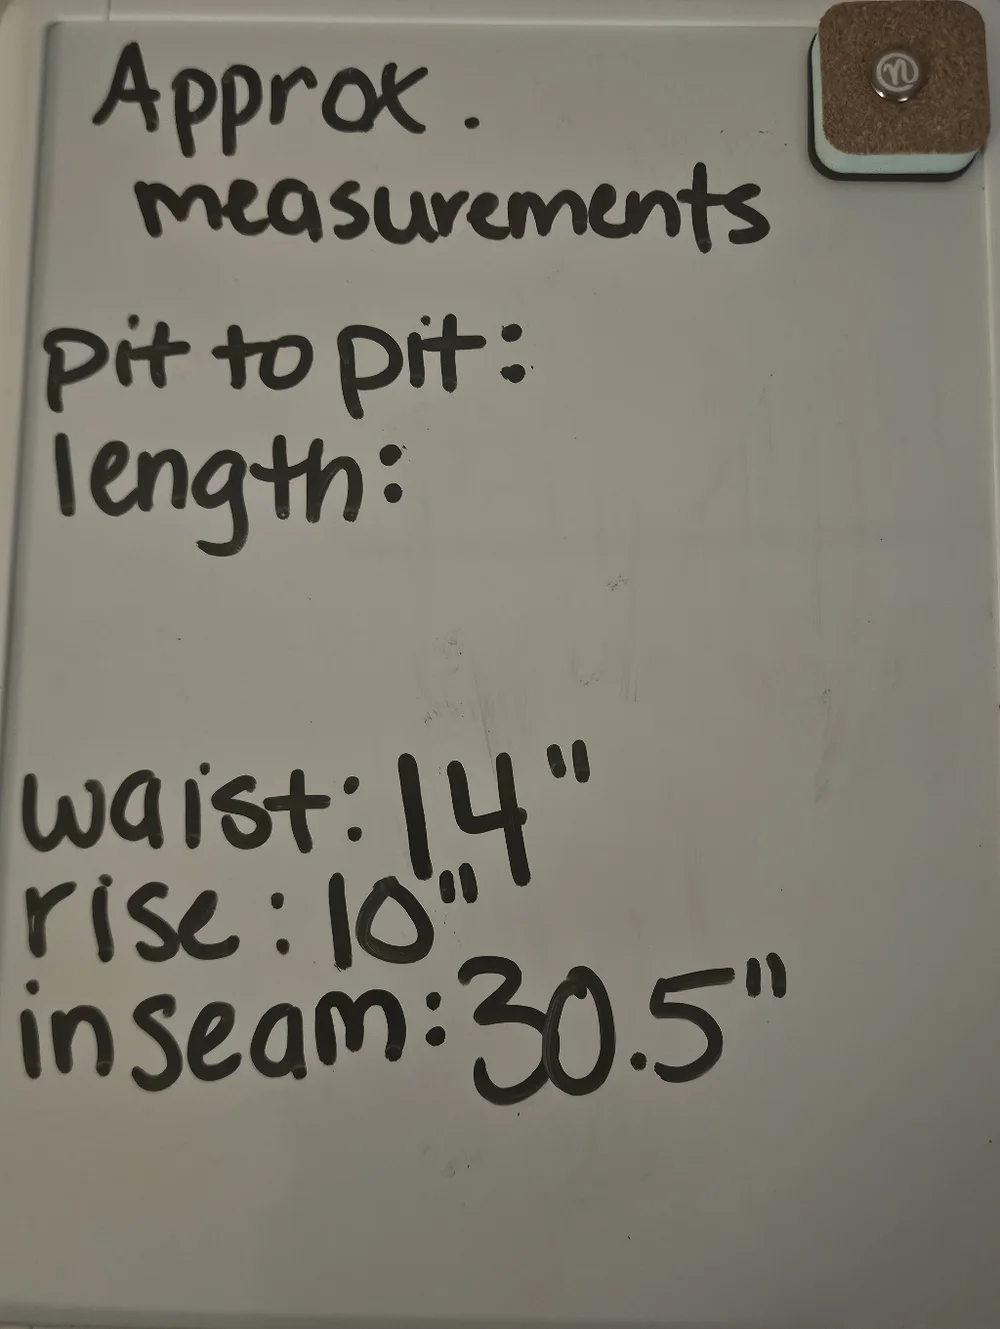 Approx.
measurements
pit to pit:
length:
waist: 14"
rise: 10"
inseam: 30.5"